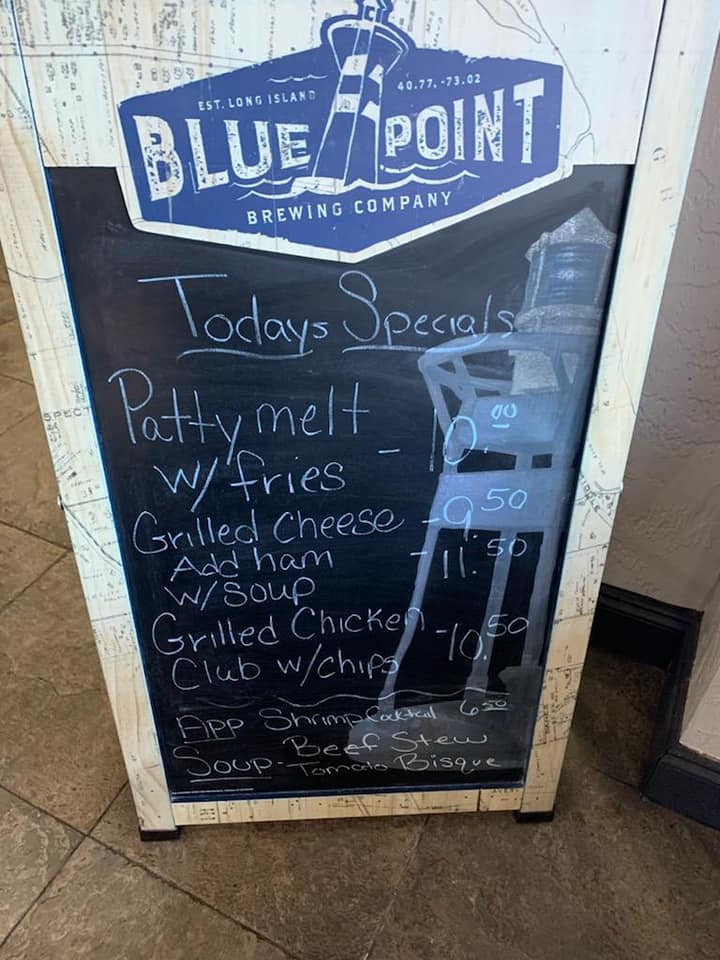 EST. LONG ISLAND 40.77, -73.02
BLUE POINT
BREWING COMPANY
Todays Specials
Patty melt
w/ fries - 10.00
Grilled Cheese - 9.50
Add ham - 11.50
w/ Soup
Grilled Chicken - 10.50
Club w/chips
App Shrimp Cocktail 6.50
Soup - Beef Stew
Tomato Bisque